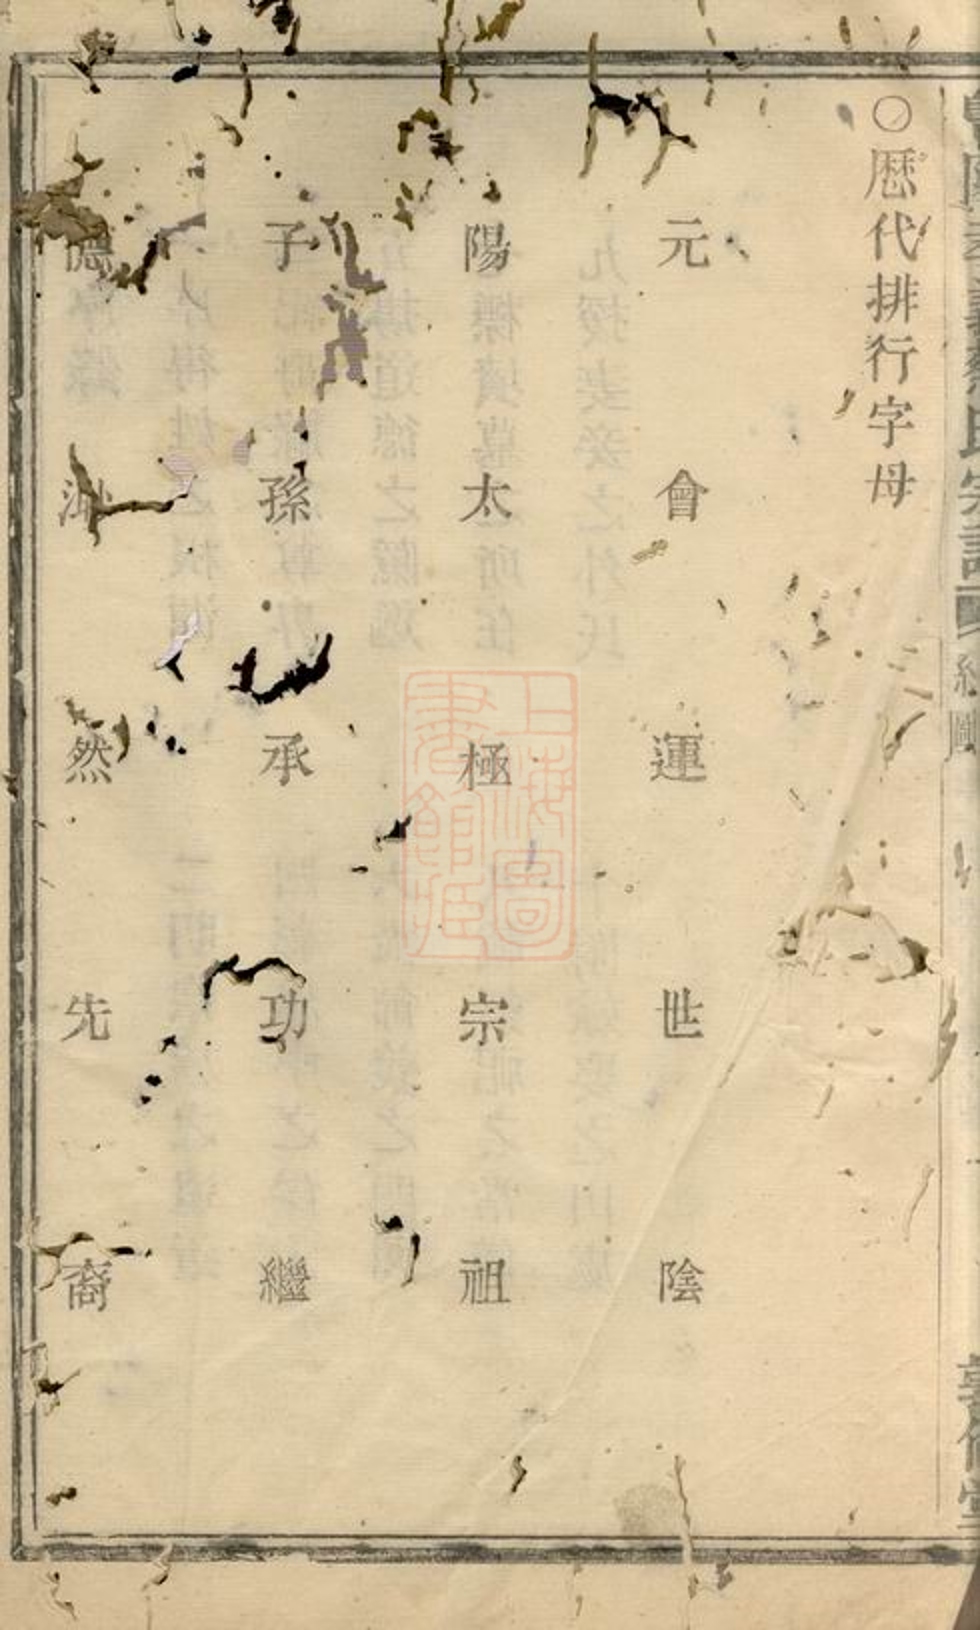 ○歷代排行字母
元會運世陰
陽太極宗祖
子孫承功繼
德 然先裔
上海圖書館藏